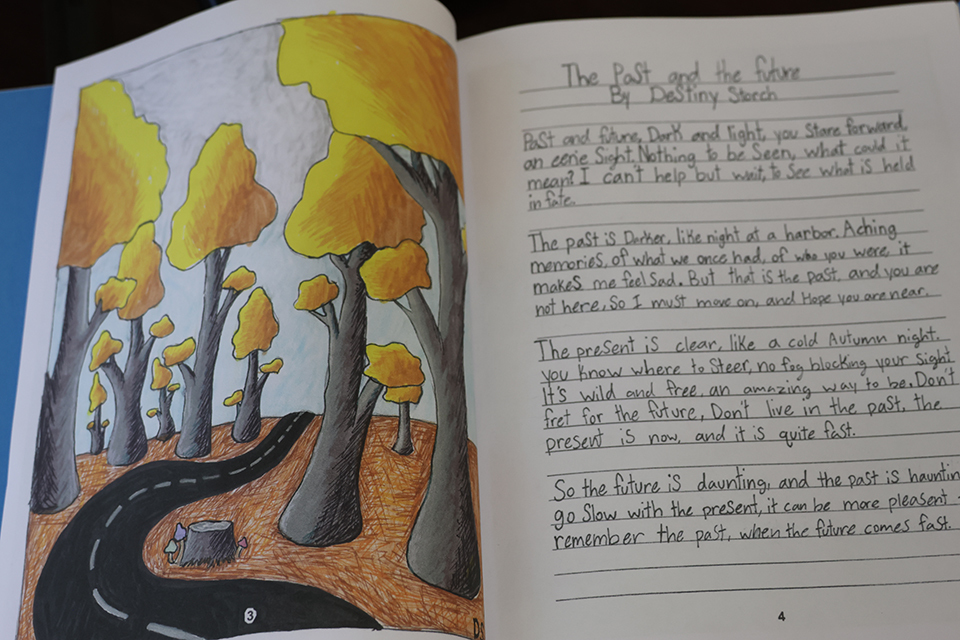 The Past and the future
By Destiny Storch
Past and future, Dark and light, you Stare forward,
an eerie Sight. Nothing to be Seen, what could it
mean? I can't help but wait, to See what is held
in fate.
The past is Darker, like night at a harbor. Aching
memories, of what we once had, of who you were, it
makes me feel Sad. But that is the past, and you are
not here. So I must move on, and Hope you are near.
The present is clear, like a cold Autumn night.
you know where to Steer, no fog blocking your Sight
It's wild and free, an amazing way to be. Don't
fret for the future, Don't live in the past, the
present is now, and it is quite fast.
So the future is daunting, and the past is hauntin
go Slow with the present, it can be more pleasent
remember the past, when the future comes fast.
3
4